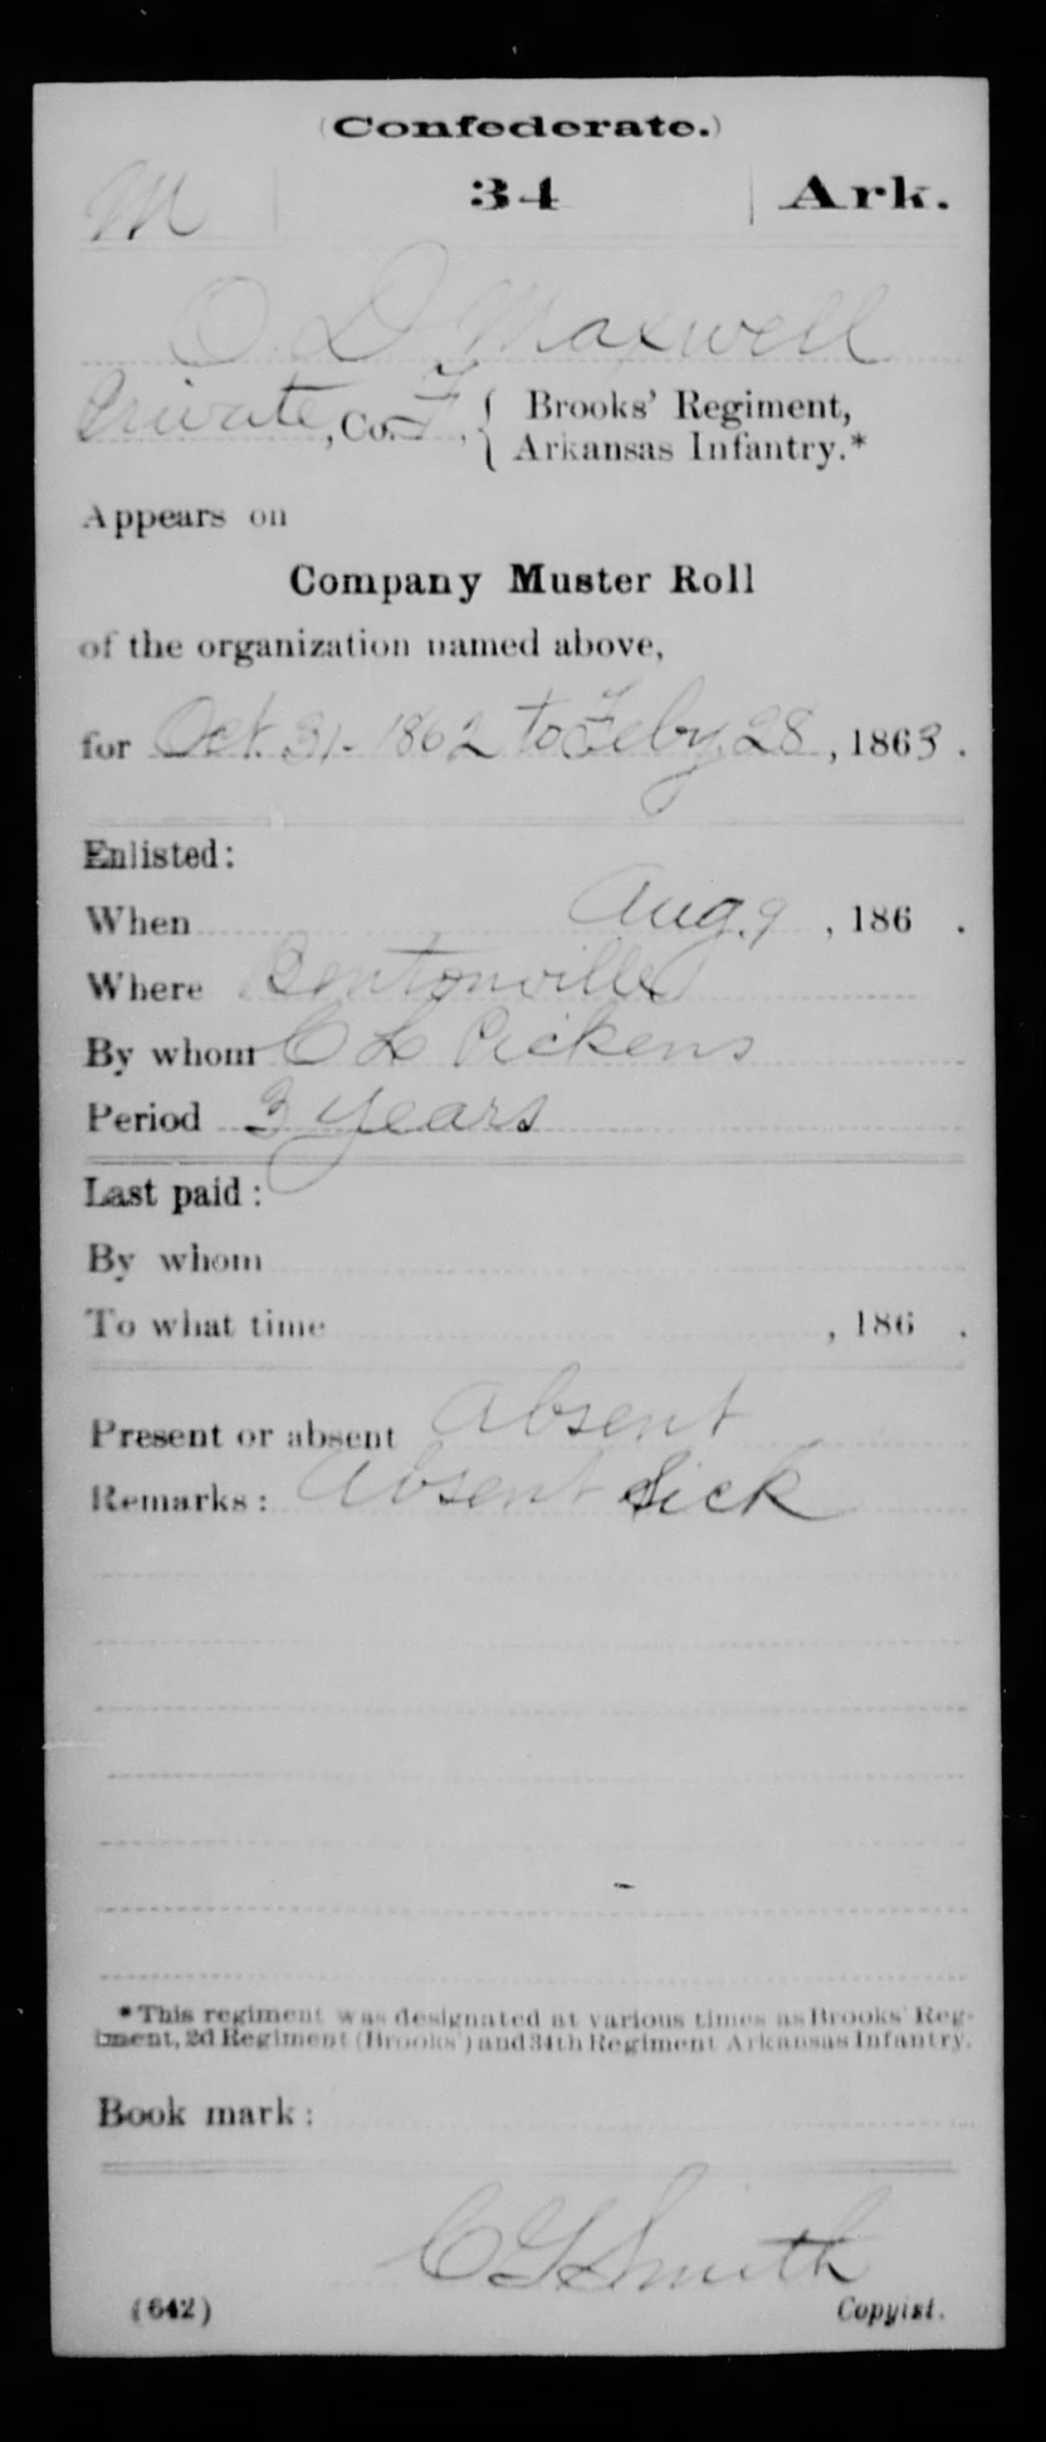 (Confederate.)
M 34 Ark.
O. D. Maxwell
Private, Co. F, { Brooks' Regiment,
Arkansas Infantry.*
Appears on
Company Muster Roll
of the organization named above,
for Oct. 31. 1862 to Feby. 28, 1863.
Enlisted:
When Aug. 9, 186 .
Where Bentonville
By whom C L Pickens
Period 3 years
Last paid:
By whom
To what time , 186 .
Present or absent Absent
Remarks: Absent Sick
*This regiment was designated at various times as Brooks' Reg-
iment, 2d Regiment (Brooks') and 34th Regiment Arkansas Infantry.
Book mark:
C G Smith
(642) Copyist.